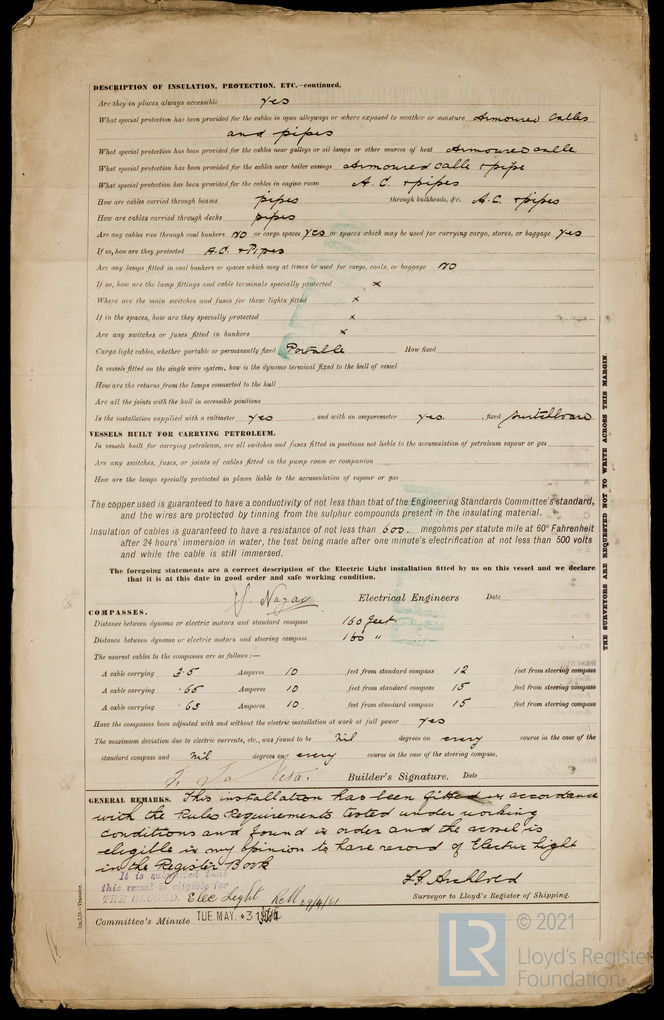 DESCRIPTION OF INSULATION, PROTECTION, ETC.—continued.
Are they in places always accessible yes
What special protection has been provided for the cables in open alleyways or where exposed to weather or moisture Armoured Cables
and pipes
What special protection has been provided for the cables near galleys or oil lamps or other sources of heat Armoured cable
What special protection has been provided for the cables near boiler casings Armoured cable + pipe
What special protection has been provided for the cables in engine room A. C. + pipes
How are cables carried through beams pipes through bulkheads, &c. A.C. + pipes
How are cables carried through decks pipes
Are any cables run through coal bunkers no or cargo spaces yes or spaces which may be used for carrying cargo, stores, or baggage yes
If so, how are they protected A.C. + Pipes
Are any lamps fitted in coal bunkers or spaces which may at times be used for cargo, coals, or baggage no
If so, how are the lamp fittings and cable terminals specially protected x
Where are the main switches and fuses for these lights fitted x
If in the spaces, how are they specially protected x
Are any switches or fuses fitted in bunkers x
Cargo light cables, whether portable or permanently fixed Portable How fixed
In vessels fitted on the single wire system, how is the dynamo terminal fixed to the hull of vessel
How are the returns from the lamps connected to the hull
Are all the joints with the hull in accessible positions
Is the installation supplied with a voltmeter yes , and with an amperemeter yes. , fixed switchboard
VESSELS BUILT FOR CARRYING PETROLEUM.
In vessels built for carrying petroleum, are all switches and fuses fitted in positions not liable to the accumulation of petroleum vapour or gas
Are any switches, fuses, or joints of cables fitted in the pump room or companion
How are the lamps specially protected in places liable to the accumulation of vapour or gas
The copper used is guaranteed to have a conductivity of not less than that of the Engineering Standards Committee's standard,
and the wires are protected by tinning from the sulphur compounds present in the insulating material.
Insulation of cables is guaranteed to have a resistance of not less than 600. megohms per statute mile at 60° Fahrenheit
after 24 hours' immersion in water, the test being made after one minute's electrification at not less than 500 volts
and while the cable is still immersed.
The foregoing statements are a correct description of the Electric Light installation fitted by us on this vessel and we declare
that it is at this date in good order and safe working condition.
Electrical Engineers Date
COMPASSES.
Distance between dynamo or electric motors and standard compass 160 feet
Distance between dynamo or electric motors and steering compass 160 "
The nearest cables to the compasses are as follows:—
A cable carrying 3.5 Amperes 10 feet from standard compass 12 feet from steering compass
A cable carrying .65 Amperes 10 feet from standard compass 15 feet from steering compass
A cable carrying .65 Amperes 10 feet from standard compass 15 feet from steering compass
Have the compasses been adjusted with and without the electric installation at work at full power yes
The maximum deviation due to electric currents, etc., was found to be nil degrees on every course in the case of the
standard compass and nil degrees on every course in the case of the steering compass.
Builder's Signature. Date
GENERAL REMARKS. This installation has been fitted in accordance
with the Rules Requirements tested under working
conditions and found in order and the vessel is
eligible in my opinion to have record of Electric Light
in the Register Book
It is submitted that
this vessel is eligible for
THE RECORD. Elec Light
Surveyor to Lloyd's Register of Shipping.
Committee's Minute TUE. MAY. 3
THE SURVEYORS ARE REQUESTED NOT TO WRITE ACROSS THIS MARGIN.
© 2021
LR
Lloyd's Register
Foundation